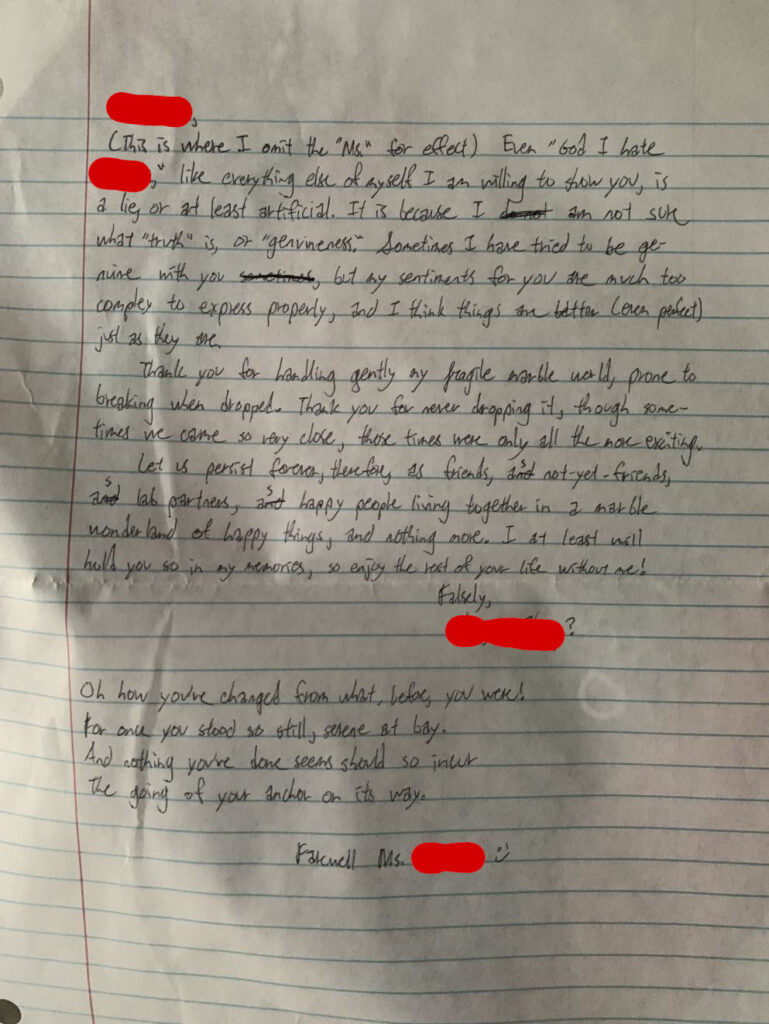 ,
(This is where I omit the "Ms." for effect) Even "God I hate
," like everything else of myself I am willing to show you, is
a lie, or at least artificial. It is because I do not am not sure
what "truth" is, or "genuineness." Sometimes I have tried to be ge-
nuine with you sometimes, but my sentiments for you are much too
complex to express properly, and I think things are better (even perfect)
just as they are.
Thank you for handling gently my fragile marble world, prone to
breaking when dropped. Thank you for never dropping it, though some-
times we came so very close, those times were only all the more exciting.
Let us persist forever, therefore, as friends, and as not-yet-friends,
and as lab partners, and as happy people living together in a marble
wonderland of happy things, and nothing more. I at least will
hold you so in my memories, so enjoy the rest of your life without me!
Falsely,
?
Oh how you've changed from what, before, you were!
For once you stood so still, serene at bay.
And nothing you've done seems should so incur
The going of your anchor on its way.
Farewell Ms. :)